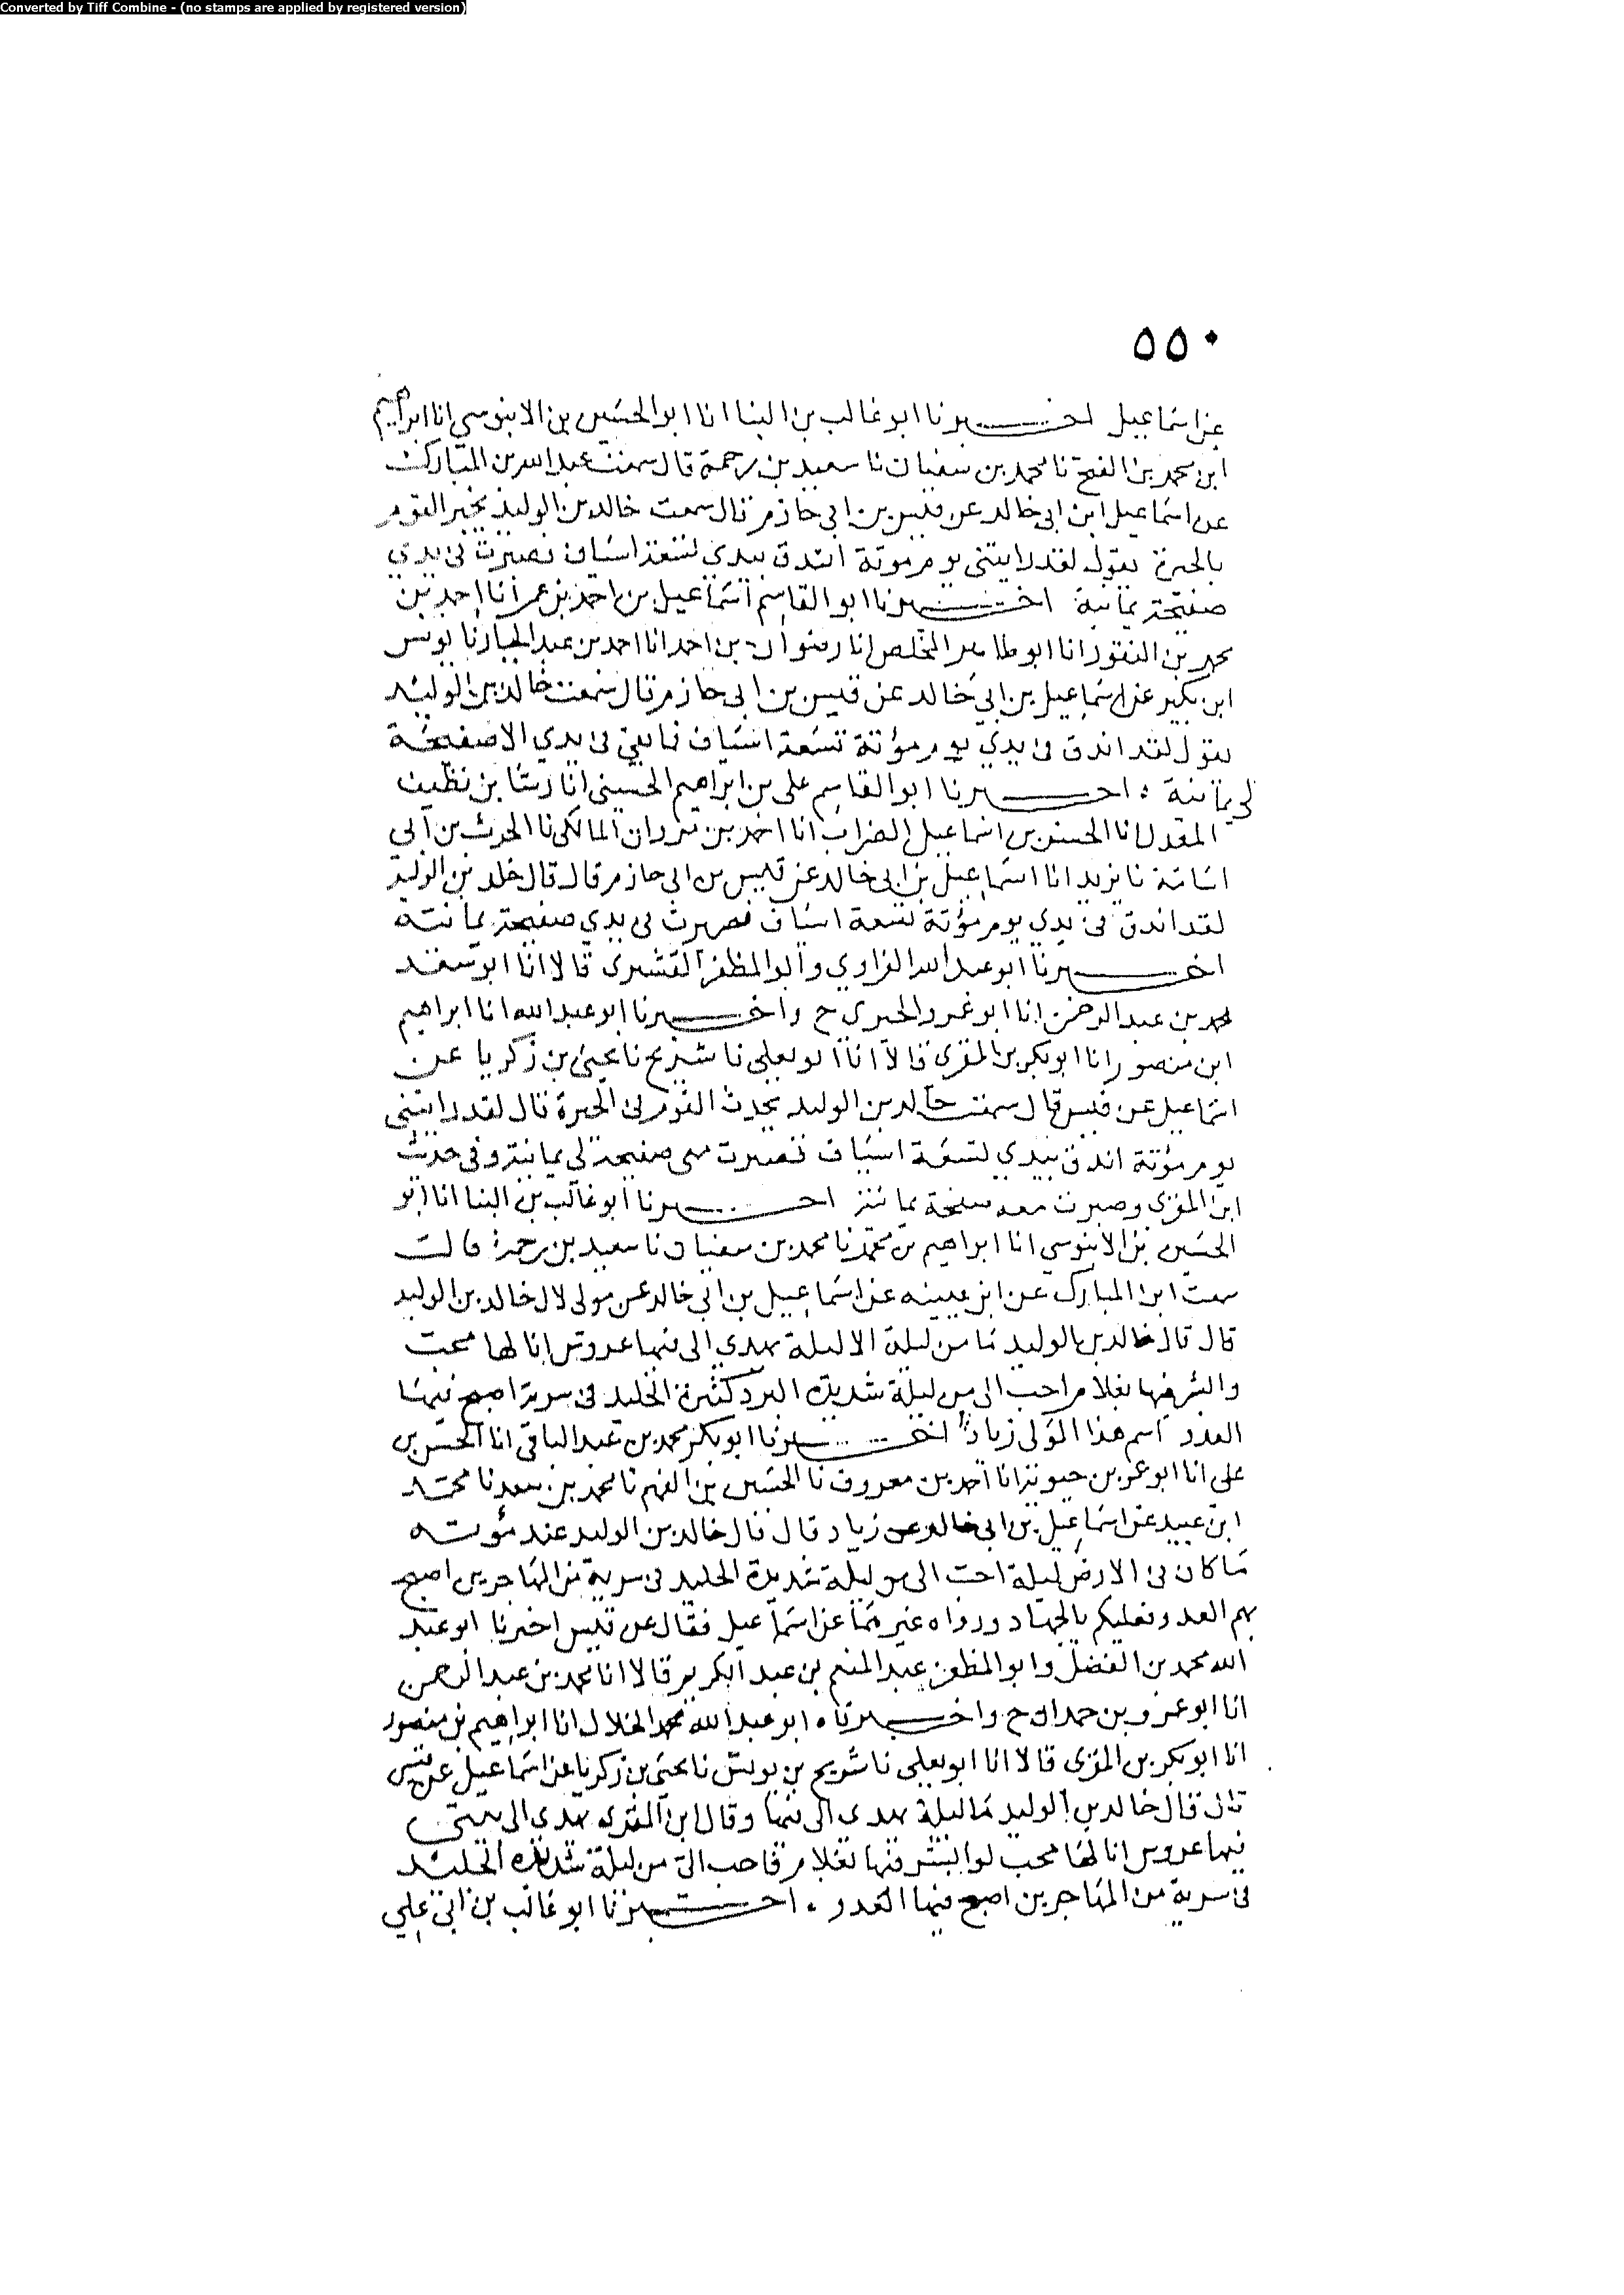 Converted by Tiff Combine - (no stamps are applied by registered version)
٥٥٠
عن اسماعيل اخبرنا ابو غالب بن البنا انا ابو الحسين بن الابنوسي انا ابراهيم
ابن محمد بن الفتح نا محمد بن سفيان نا سعيد بن رحمة قال سمعت عبد الله بن المبارك
عن اسماعيل ابن ابي خالد عن قيس بن ابي حازم قال سمعت خالد بن الوليد يخبر القوم
بالحيرة يقول لقد رايتني يوم موتة اندق بيدي تسعة اسياف فصبرت في يدي
صفيحة يمانية اخبرنا ابو القاسم اسماعيل بن احمد بن عمر انا احمد بن
محمد بن النقور انا ابو طاهر المخلص انا رضوان بن احمد انا احمد بن عبد الجبار نا يونس
ابن بكير عن اسماعيل بن ابي خالد عن قيس بن ابي حازم قال سمعت خالد بن الوليد
يقول لقد اندق في يدي يوم مؤتة تسعة اسياف فما بقي في يدي الا صفيحة
لي يمانية . اخبرنا ابو القاسم علي بن ابراهيم الحسيني انا رشا بن نظيف
المعدل انا الحسن بن اسماعيل الضراب انا احمد بن مروان المالكي نا الحرث بن ابي
اسامة نا يزيد انا اسماعيل بن ابي خالد عن قيس بن ابي حازم قال قال خلد بن الوليد
لقد اندق في يدي يوم مؤتة تسعة اسياف فصبرت في يدي صفيحة يمانية
اخبرنا ابو عبد الله الفراوي وابو المظفر القشيري قالا انا ابو سعد
محمد بن عبد الرحمن انا ابو عمرو الحيري ح واخبرنا ابو عبد الله انا ابراهيم
ابن منصور انا ابو بكر بن المقرى قالا انا ابو يعلى نا شريح نا يحيى بن زكريا عن
اسماعيل عن قيس قال سمعت خالد بن الوليد يحدث القوم في الحيرة قال لقد رايتني
يوم مؤتة اندق بيدي تسعة اسياف فصبرت معي صفيحة لي يمانية وفي حديث
ابن المقرى وصبرت معه صفيحة يمانية اخبرنا ابو غالب بن البنا انا ابو
الحسين بن الابنوسي انا ابراهيم بن محمد نا محمد بن سفيان نا سعيد بن رحمة قالت
سمعت ابن المبارك عن ابن عيينه عن اسماعيل بن ابي خالد عن مولى لال خالد بن الوليد
قال قال خالد بن الوليد ما من ليلة الا ليلة يهدي الى فيها عروس انا لها محب
والبشر فيها بغلام احب الى من ليلة شديدة البرد كثيرة الجليد في سرية اصبح فيها
العدو اسم هذا المولى زياد اخبرنا ابو بكر محمد بن عبد الباقي انا الحسن بن
علي انا ابو عمر بن حيوية انا احمد بن معروف نا الحسين بن الفهم نا محمد بن سعد نا محمد
ابن عبيد عن اسماعيل بن ابي خالد عن زياد قال قال خالد بن الوليد عند موته
ما كان في الارض ليلة احب الى من ليلة شديدة الجليد في سرية من المهاجرين اصبح
بهم العدو فعليكم بالجهاد ورواه غيرهما عن اسماعيل فقال عن قيس اخبرنا ابو عبد
الله محمد بن الفضل وابو المظفر عبد المنعم بن عبد الكريم قالا انا محمد بن عبد الرحمن
انا ابو عمرو بن حمدان ح واخبرناه ابو عبد الله محمد الخلال انا ابراهيم بن منصور
انا ابو بكر بن المقرى قالا انا ابو يعلى نا شريح بن يونس نا يحيى بن زكريا عن اسماعيل عن قيس
قال قال خالد بن الوليد ما ليلة يهدى الى فيها وقال ابن المقرى يهدي الى بيتي
فيها عروس انا لها محب لو ابشر فيها بغلام باحب الي من ليلة شديدة الجليد
في سرية من المهاجرين اصبح فيها العدو . اخبرنا ابو غالب بن ابي علي